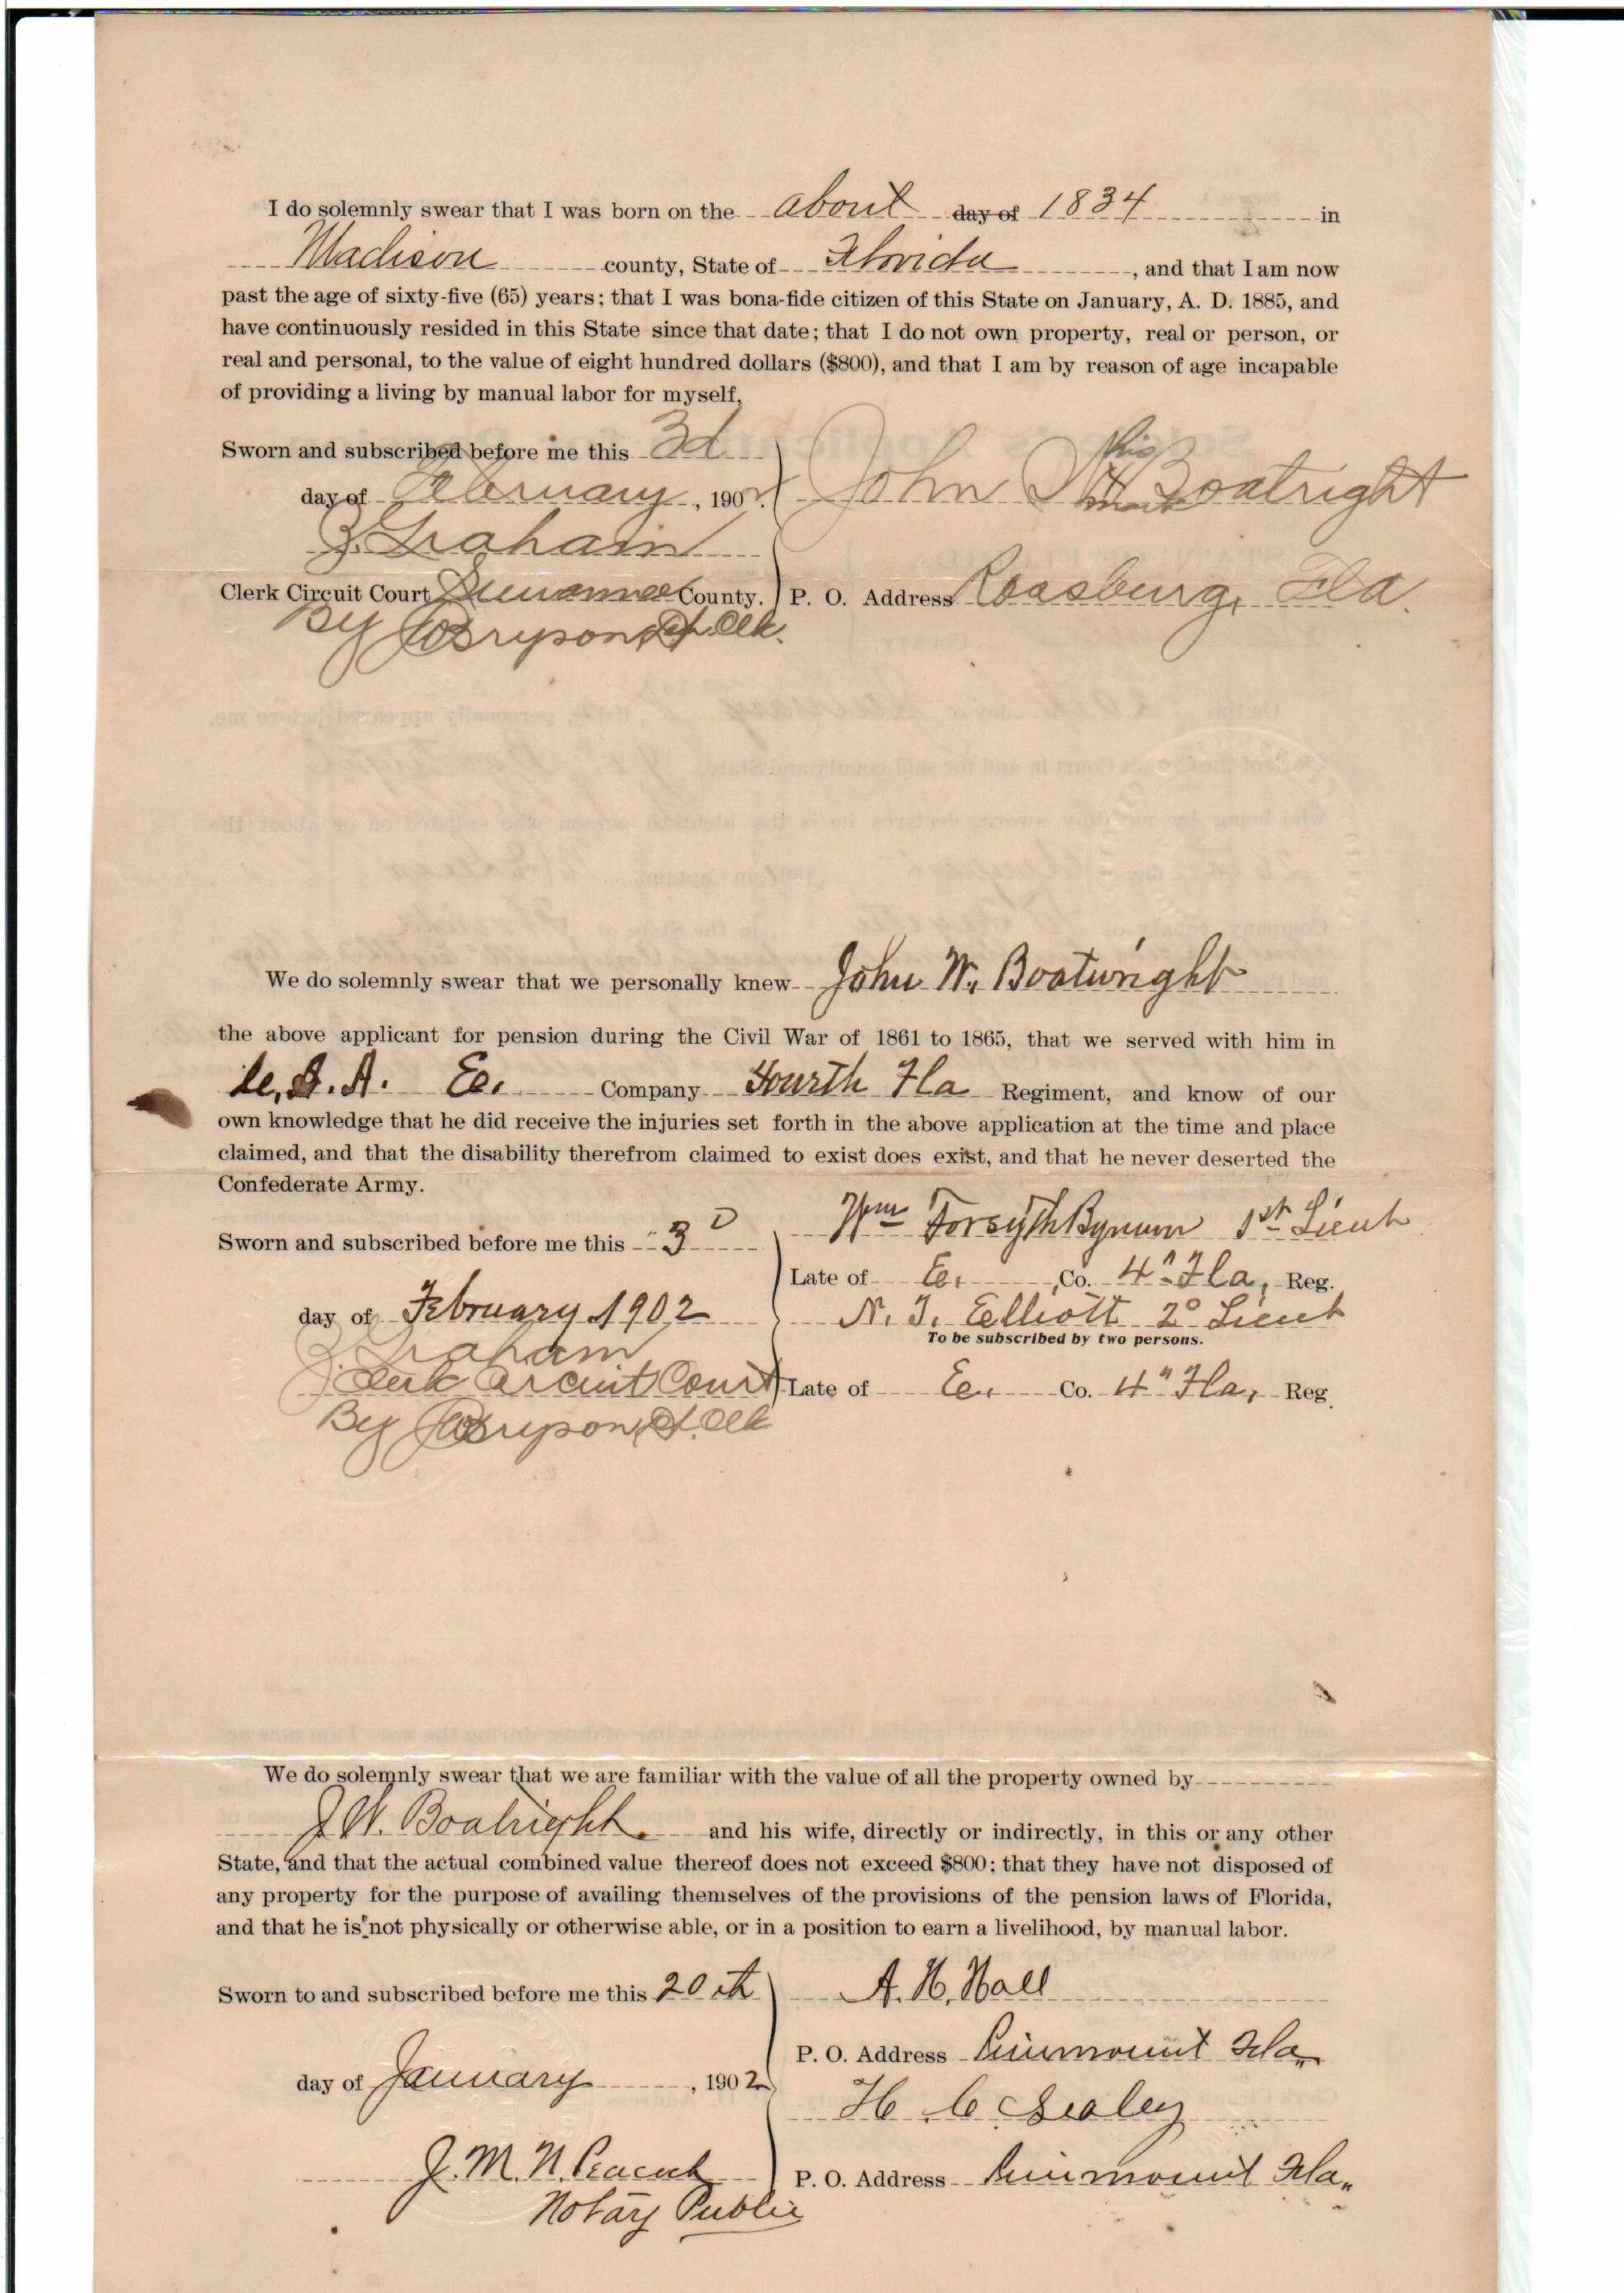 I do solemnly swear that I was born on the about day of 1834 in
Madison county, State of Florida, and that I am now
past the age of sixty-five (65) years; that I was bona-fide citizen of this State on January, A. D. 1885, and
have continuously resided in this State since that date; that I do not own property, real or person, or
real and personal, to the value of eight hundred dollars ($800), and that I am by reason of age incapable
of providing a living by manual labor for myself,
Sworn and subscribed before me this 3d
day of February, 1902.
John W his X mark Boatright
Graham
Clerk Circuit Court Suwannee County.
P. O. Address Roasburg, Fla.
By Bryson, D. Clk.
We do solemnly swear that we personally knew John W. Boatwright
the above applicant for pension during the Civil War of 1861 to 1865, that we served with him in
C. S. A. E. Company Fourth Fla Regiment, and know of our
own knowledge that he did receive the injuries set forth in the above application at the time and place
claimed, and that the disability therefrom claimed to exist does exist, and that he never deserted the
Confederate Army.
Sworn and subscribed before me this 3D
Wm Forsyth Bynum 1st Lieut
Late of E. Co. 4" Fla, Reg.
day of February 1902
N. J. Elliott 2° Lieut
To be subscribed by two persons.
Graham
Clerk Circuit Court
Late of E. Co. 4" Fla, Reg.
By Bryson, D. Clk
We do solemnly swear that we are familiar with the value of all the property owned by
J. W. Boatright. and his wife, directly or indirectly, in this or any other
State, and that the actual combined value thereof does not exceed $800; that they have not disposed of
any property for the purpose of availing themselves of the provisions of the pension laws of Florida,
and that he is not physically or otherwise able, or in a position to earn a livelihood, by manual labor.
Sworn to and subscribed before me this 20th
A. H. Hall
P. O. Address Pinemount Fla.
day of January, 1902
H. C. Sealey
J. M. N. Peacock
P. O. Address Pinemount Fla.
Notary Public